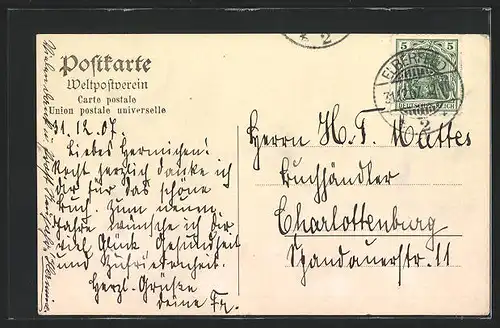 Postkarte
Weltpostverein
Carte postale
Union postale universelle
31.12.07.
Liebes Hermichen!
Recht herzlich danke ich
dir für das schöne
Buch. Zum neuen
Jahre wünsche ich Dir
viel Glück Gesundheit
und Zufriedenheit.
Herzl. Grüße
deine
2
5 5
ELBERFELD
31.12.07
2
Herrn H. T. Mattes
Buchhändler
Charlottenburg
Spandauerstr. 11